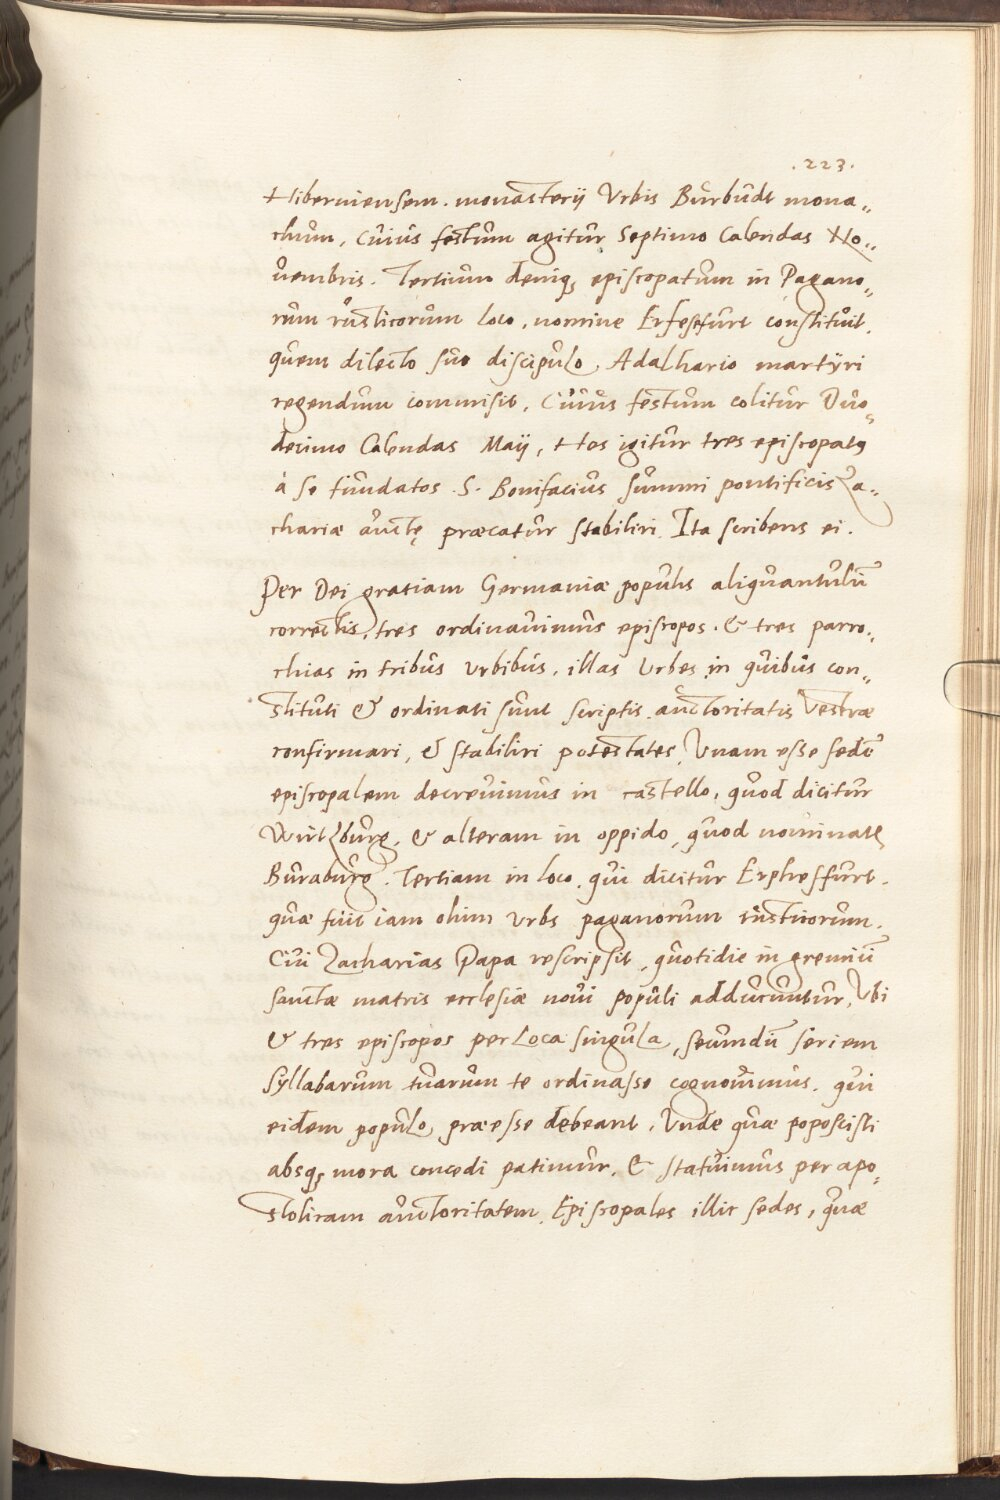 .223.
Hiberniensem. monasterij Vrbis Burbudt mona„
chum, cuius festum agitur Septimo Calendas No„
uembris. Tertium deniqȝ episcopatum in Pagano„
rum rusticorum loco, nomine Erfesefurt constituit.
quem dilecto suo discipulo, Adalhario martÿri
regendum commisit, Cuius festum colitur Duo„
decimo Calendas Maij, Hos igitur tres episcopatꝰ
à se fundatos .S. Bonifacius summi pontificis Za„
chariæ auctę præcatur stabiliri. Ita scribens ei.
Per Dei gratiam Germaniæ populis aliquantulũ
correctis, tres ordinauimus episcopos. & tres parro„
chias in tribus Vrbibus, illas Vrbes in quibus con„
stituti & ordinati sunt scriptis auctoritatis Vestræ
confirmari, & stabiliri potestates, Vnam esse sedẽ
episcopalem decreuimus in castello, quod dicitur
Wirtzburg, & alteram in oppido, quod nominatꝛ
Buraburg. Tertiam in loco, qui dicitur Erphesfurt.
quæ fuit iam olim Vrbs paganorum rusticorum.
Cui Zacharias Papa rescripsit, quotidie in gremiũ
sanctæ matris ecclesiæ noui populi adducuntur, Vbi
& tres episcopos per Loca singula, secundũ seriem
syllabarum tuarum te ordinasse cognouimus. qui
eidem populo, præesse debeant, Vnde quæ poposcisti
absqȝ mora concedi patimur, & statuimus per apo„
stolicam auctoritatem, Episcopales illic sedes, quæ